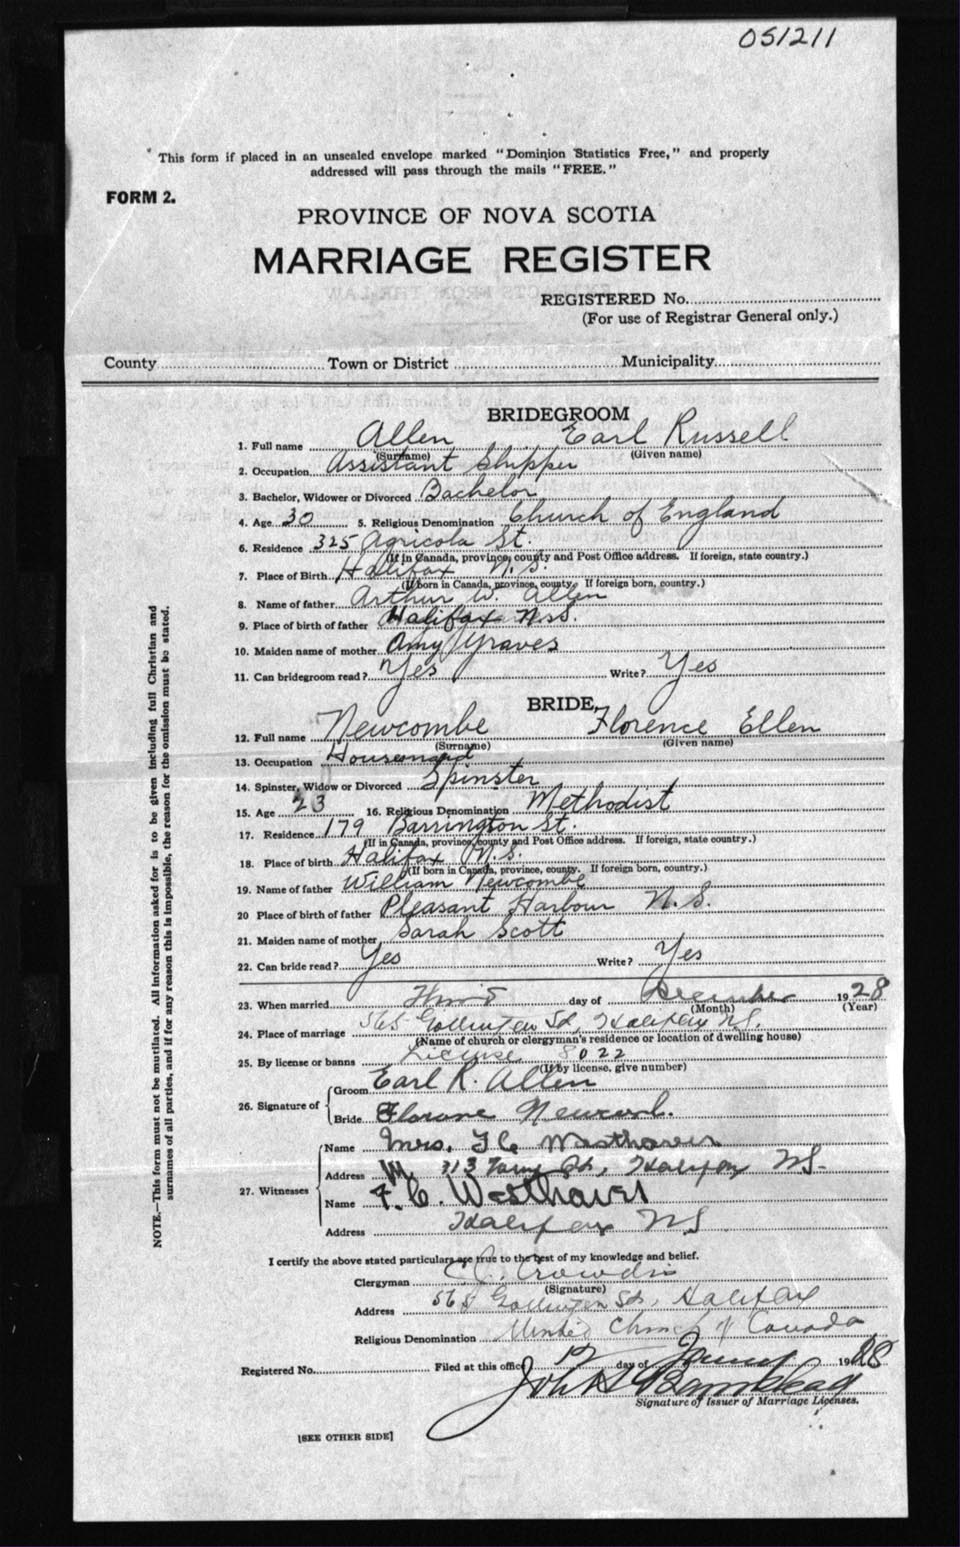 051211
This form if placed in an unsealed envelope marked "Dominion Statistics Free," and properly
addressed will pass through the mails "FREE."
FORM 2.
PROVINCE OF NOVA SCOTIA
MARRIAGE REGISTER
REGISTERED No.
(For use of Registrar General only.)
County Town or District Municipality
BRIDEGROOM
1. Full name Allen Earl Russell
(Surname) (Given name)
2. Occupation Assistant Shipper
3. Bachelor, Widower or Divorced Bachelor
4. Age 30 5. Religious Denomination Church of England
6. Residence 325 Agricola St.
(If in Canada, province, county and Post Office address. If foreign, state country.)
7. Place of Birth Halifax N.S.
(If born in Canada, province, county. If foreign born, country.)
8. Name of father Arthur W. Allen
9. Place of birth of father Halifax N.S.
10. Maiden name of mother Amy Graves
11. Can bridegroom read? Yes Write? Yes
BRIDE
12. Full name Newcombe Florence Ellen
(Surname) (Given name)
13. Occupation Housemaid
14. Spinster, Widow or Divorced Spinster
15. Age 23 16. Religious Denomination Methodist
17. Residence 179 Barrington St.
(If in Canada, province, county and Post Office address. If foreign, state country.)
18. Place of birth Halifax N.S.
(If born in Canada, province, county. If foreign born, country.)
19. Name of father William Newcombe
20 Place of birth of father Pleasant Harbour N.S.
21. Maiden name of mother Sarah Scott
22. Can bride read? Yes Write? Yes
23. When married day of December 1928
(Month) (Year)
24. Place of marriage 565 Gottingen St, Halifax N.S.
(Name of church or clergyman's residence or location of dwelling house)
25. By license or banns License 8022
(If by license, give number)
26. Signature of Groom Earl R. Allen
Bride Florence Newcomb.
27. Witnesses Name Mrs. F C Westhaver
Address Halifax N.S.
Name F. C. Westhaver
Address Halifax N.S
I certify the above stated particulars are true to the best of my knowledge and belief.
Clergyman Crowdis
(Signature)
Address 565 Gottingen St, Halifax
Religious Denomination United Church of Canada
Registered No. Filed at this office day of 1928
John
Signature of Issuer of Marriage Licenses.
[SEE OTHER SIDE]
NOTE.—This form must not be mutilated. All information asked for is to be given including full Christian and
surnames of all parties, and if for any reason this is impossible, the reason for the omission must be stated.